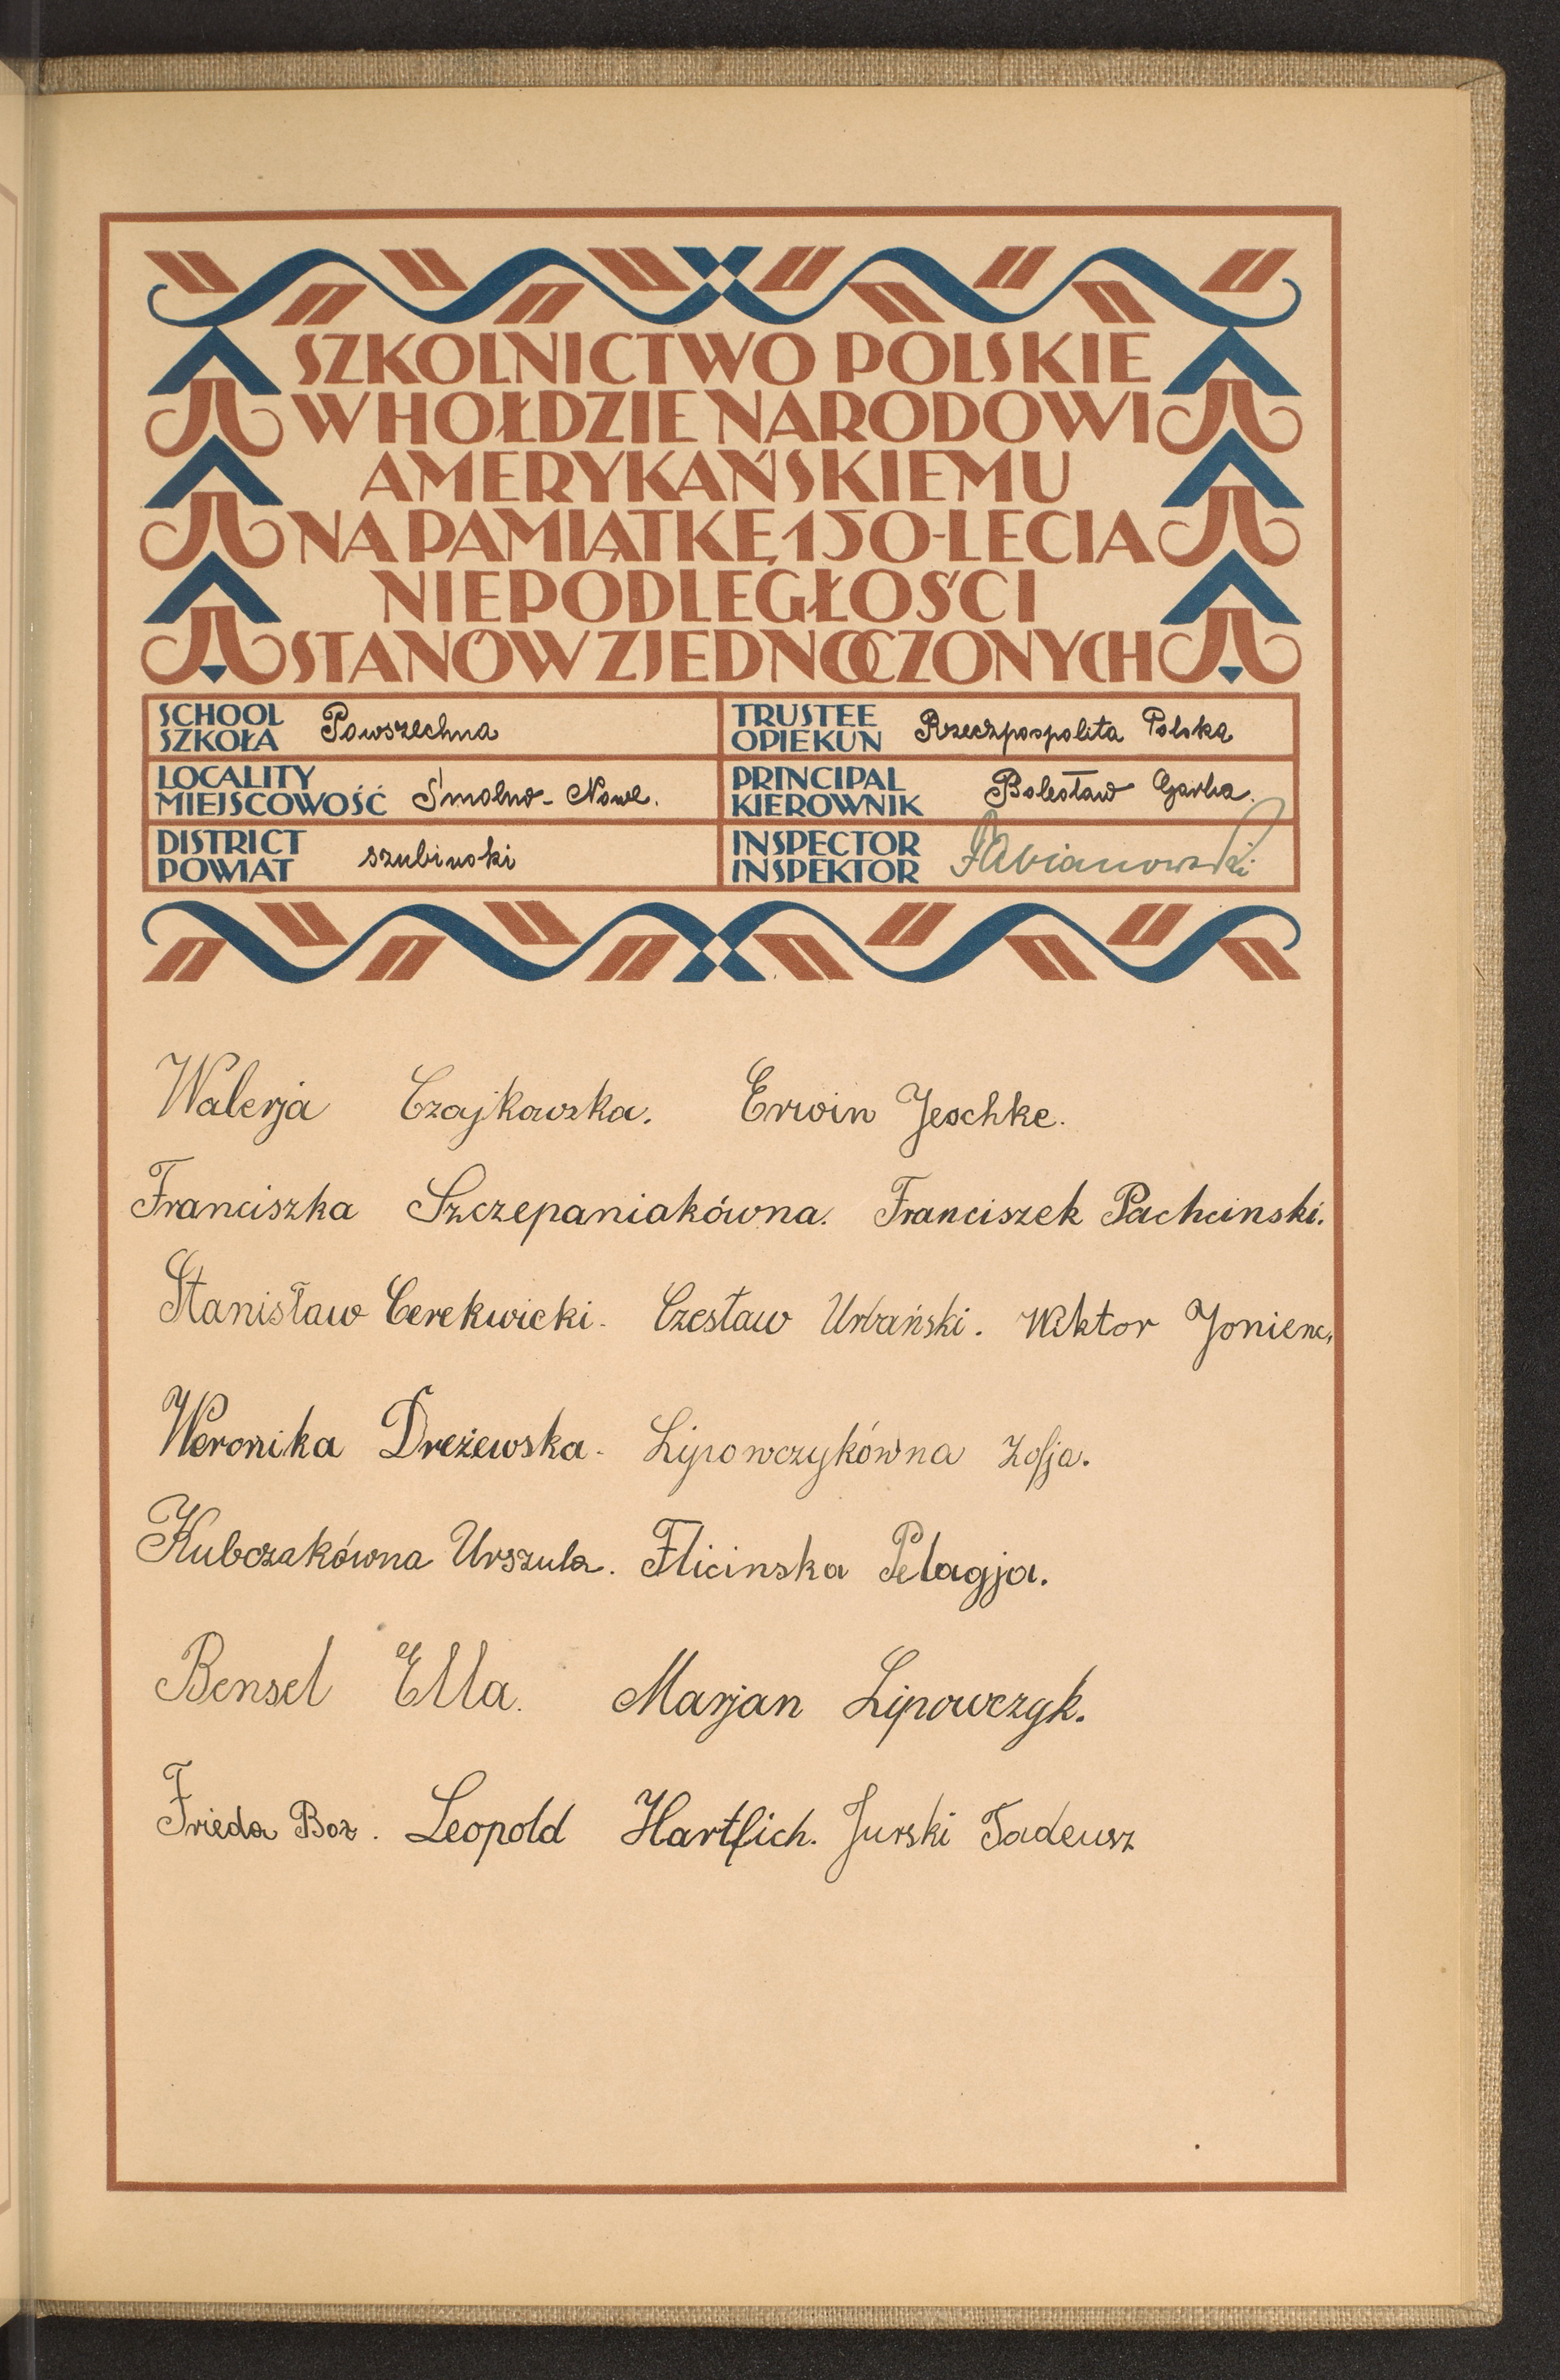 SZKOLNICTWO POLSKIE
W HOŁDZIE NARODOWI
AMERYKAŃSKIEMU
NA PAMIĄTKĘ 150-LECIA
NIEPODLEGŁOŚCI
STANÓW ZJEDNOCZONYCH
SCHOOL
SZKOŁA Powszechna
TRUSTEE
OPIEKUN Rzeczpospolita Polska
LOCALITY
MIEJSCOWOŚĆ Smolno-Nowe.
PRINCIPAL
KIEROWNIK Bolesław Garba.
DISTRICT
POWIAT szubinski
INSPECTOR
INSPEKTOR Fabianowski
Walerja Czajkowska. Erwin Jeschke.
Franciszka Szczepaniakówna. Franciszek Pachcinski.
Stanisław Cerekwicki. Czesław Urbański. Wiktor Joniene,
Weronika Dreżewska. Lipowczykówna Zofja.
Kubczakówna Urszula. Flicinska Pelagja.
Bensel Ella. Marjan Lipowczyk.
Frieda Boz. Leopold Hartfich. Jurski Tadeusz